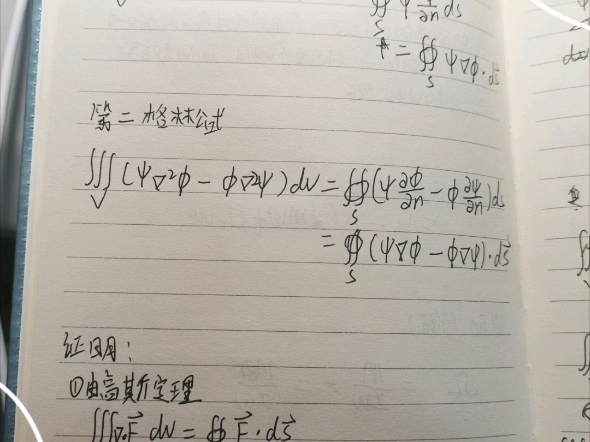 ∯_S ψ ∂φ/∂n ds
= ∯_S ψ∇φ·ds⃗
第二格林公式
∭_V (ψ∇²φ − φ∇²ψ) dV = ∯_S (ψ ∂φ/∂n − φ ∂ψ/∂n) ds
= ∯_S (ψ∇φ − φ∇ψ)·ds⃗
证明:
①由高斯定理
∭∇·F⃗ dV = ∯ F⃗·ds⃗